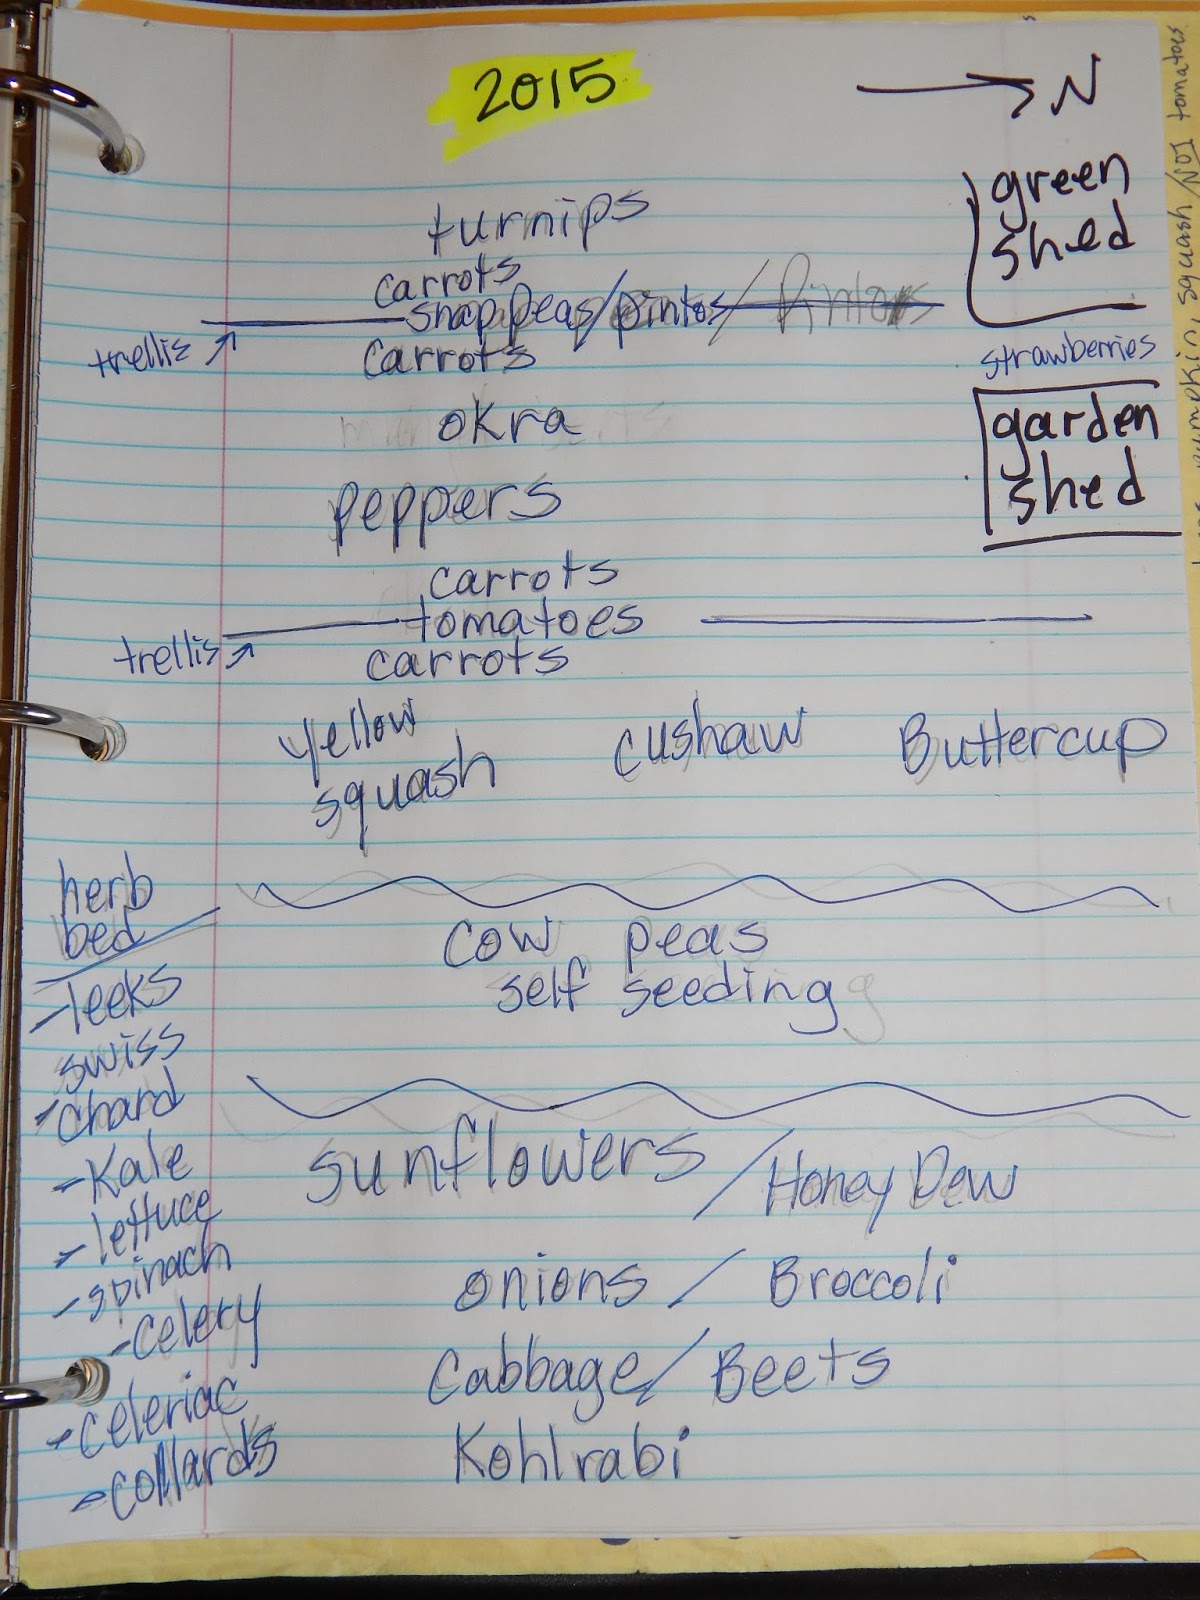 2015
→ N
green
shed
turnips
carrots
snap peas/pintos/ Pintos
trellis
carrots
strawberries
okra
garden
shed
peppers
carrots
tomatoes
trellis
carrots
yellow
squash
cushaw
Buttercup
herb
bed
-leeks
swiss
-chard
-Kale
-lettuce
-spinach
-celery
-celeriac
-collards
cow peas
self seeding
sunflowers / Honey Dew
onions / Broccoli
Cabbage / Beets
Kohlrabi
pumpkin, squash/NOT tomatoes